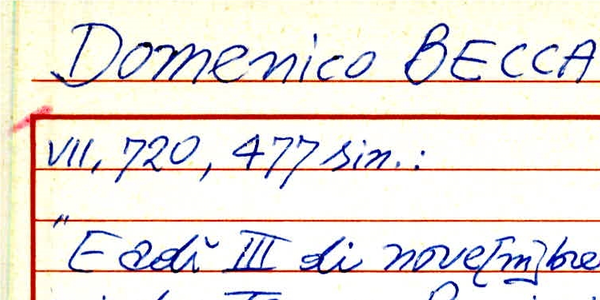 Domenico BECCA
VII, 720, 477 sin.:
"E adì III di nove[m]bre